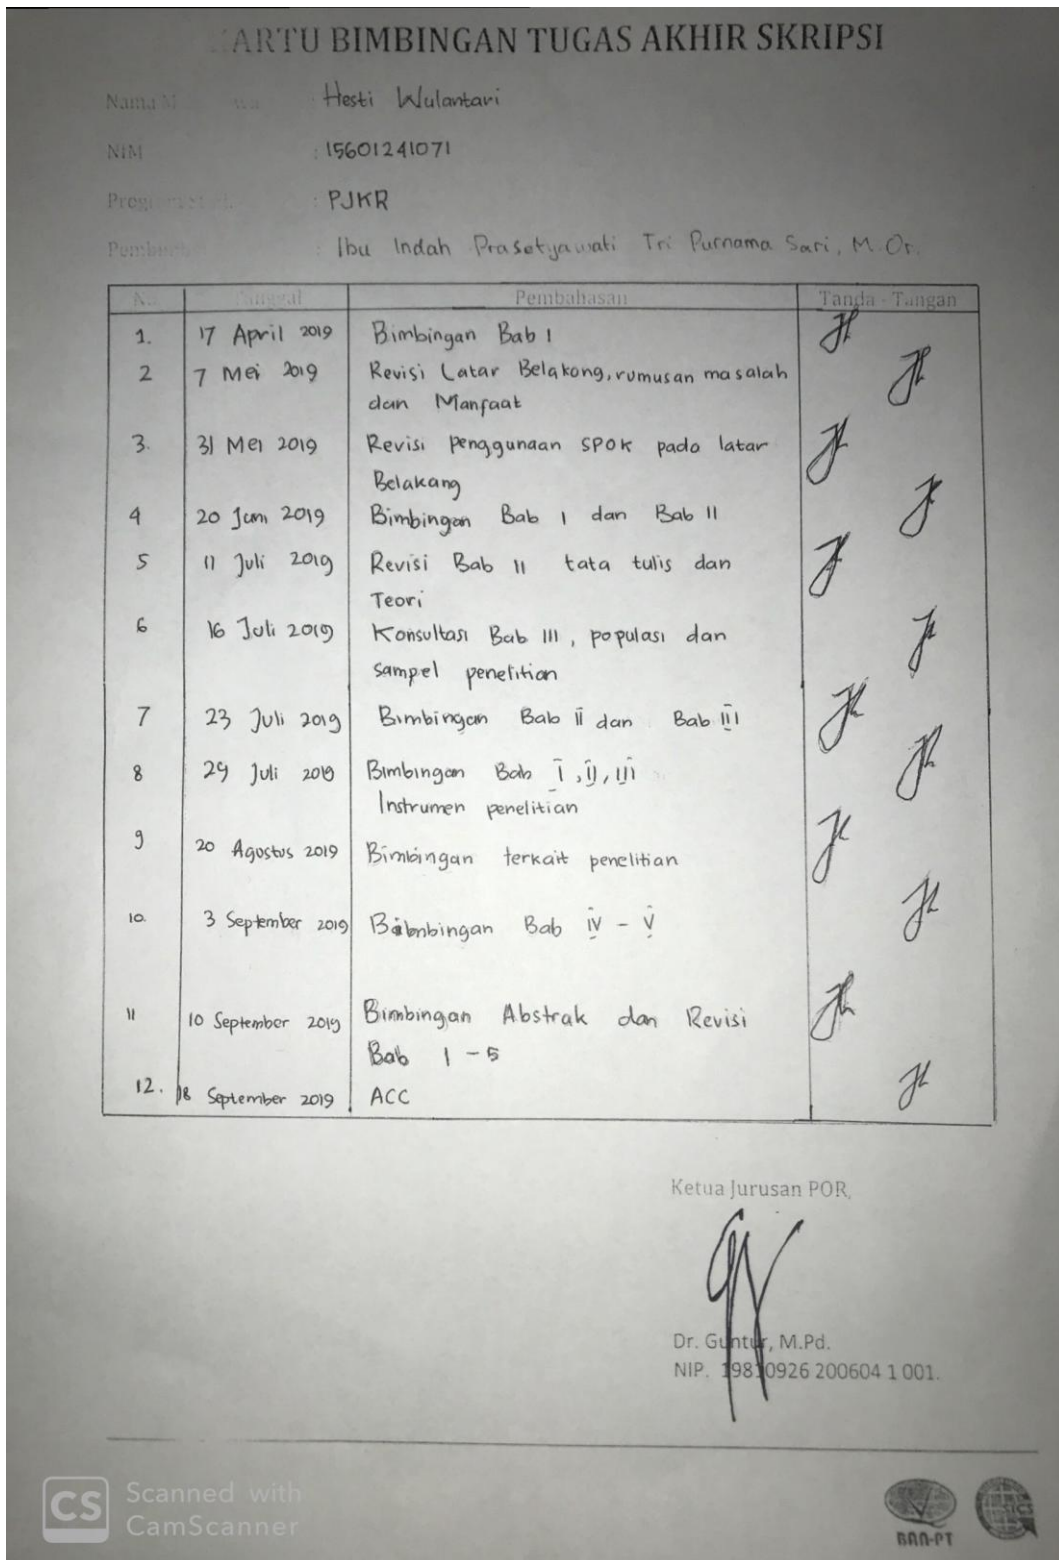 KARTU BIMBINGAN TUGAS AKHIR SKRIPSI
Nama M : Hesti Wulantari
NIM : 15601241071
: PJKR
: Ibu Indah Prasetyawati Tri Purnama Sari, M.Or.
No. Tanggal Pembahasan Tanda - Tangan
1. 17 April 2019 Bimbingan Bab I
2 7 Mei 2019 Revisi Latar Belakang, rumusan masalah
dan Manfaat
3. 31 Mei 2019 Revisi penggunaan SPOK pada latar
Belakang
4 20 Juni 2019 Bimbingan Bab I dan Bab II
5 11 Juli 2019 Revisi Bab II tata tulis dan
Teori
6 16 Juli 2019 Konsultasi Bab III, populasi dan
sampel penelitian
7 23 Juli 2019 Bimbingan Bab II dan Bab III
8 29 Juli 2019 Bimbingan Bab I, II, III
Instrumen penelitian
9 20 Agustus 2019 Bimbingan terkait penelitian
10. 3 September 2019 Bimbingan Bab IV - V
11 10 September 2019 Bimbingan Abstrak dan Revisi
Bab 1 - 5
12. 18 September 2019 ACC
Ketua Jurusan POR,
Dr. Guntur, M.Pd.
NIP. 19810926 200604 1 001.
CS Scanned with
CamScanner
BAN-PT